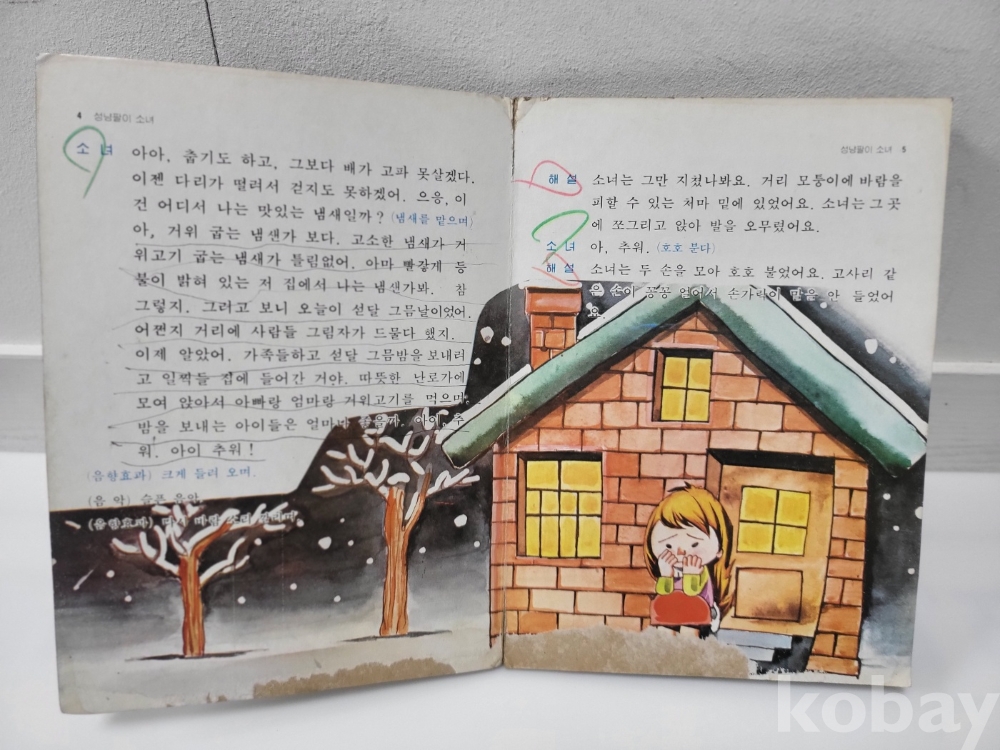 4 성냥팔이 소녀
소 녀 아아, 춥기도 하고, 그보다 배가 고파 못살겠다.
이젠 다리가 떨려서 걷지도 못하겠어. 으응, 이
건 어디서 나는 맛있는 냄새일까? (냄새를 맡으며)
아, 거위 굽는 냄샌가 보다. 고소한 냄새가 거
위고기 굽는 냄새가 틀림없어. 아마 빨갛게 등
불이 밝혀 있는 저 집에서 나는 냄샌가봐. 참
그렇지. 그러고 보니 오늘이 섣달 그믐날이었어.
어쩐지 거리에 사람들 그림자가 드물다 했지.
이제 알았어. 가족들하고 섣달 그믐밤을 보내려
고 일찍들 집에 들어간 거야. 따뜻한 난로가에
모여 앉아서 아빠랑 엄마랑 거위고기를 먹으며
밤을 보내는 아이들은 얼마나 좋을까. 아이, 추
워. 아이 추워!
(음향효과) 크게 들려 오며.
(음 악) 슬픈 음악
(음향효과) 다시 바람 소리 들리며
성냥팔이 소녀 5
해 설 소녀는 그만 지쳤나봐요. 거리 모퉁이에 바람을
피할 수 있는 처마 밑에 있었어요. 소녀는 그 곳
에 쪼그리고 앉아 발을 오무렸어요.
소 녀 아, 추워. (호호 분다)
해 설 소녀는 두 손을 모아 호호 불었어요. 고사리 같
은 손이 꽁꽁 얼어서 손가락이 말을 안 들었어
요.
kobay